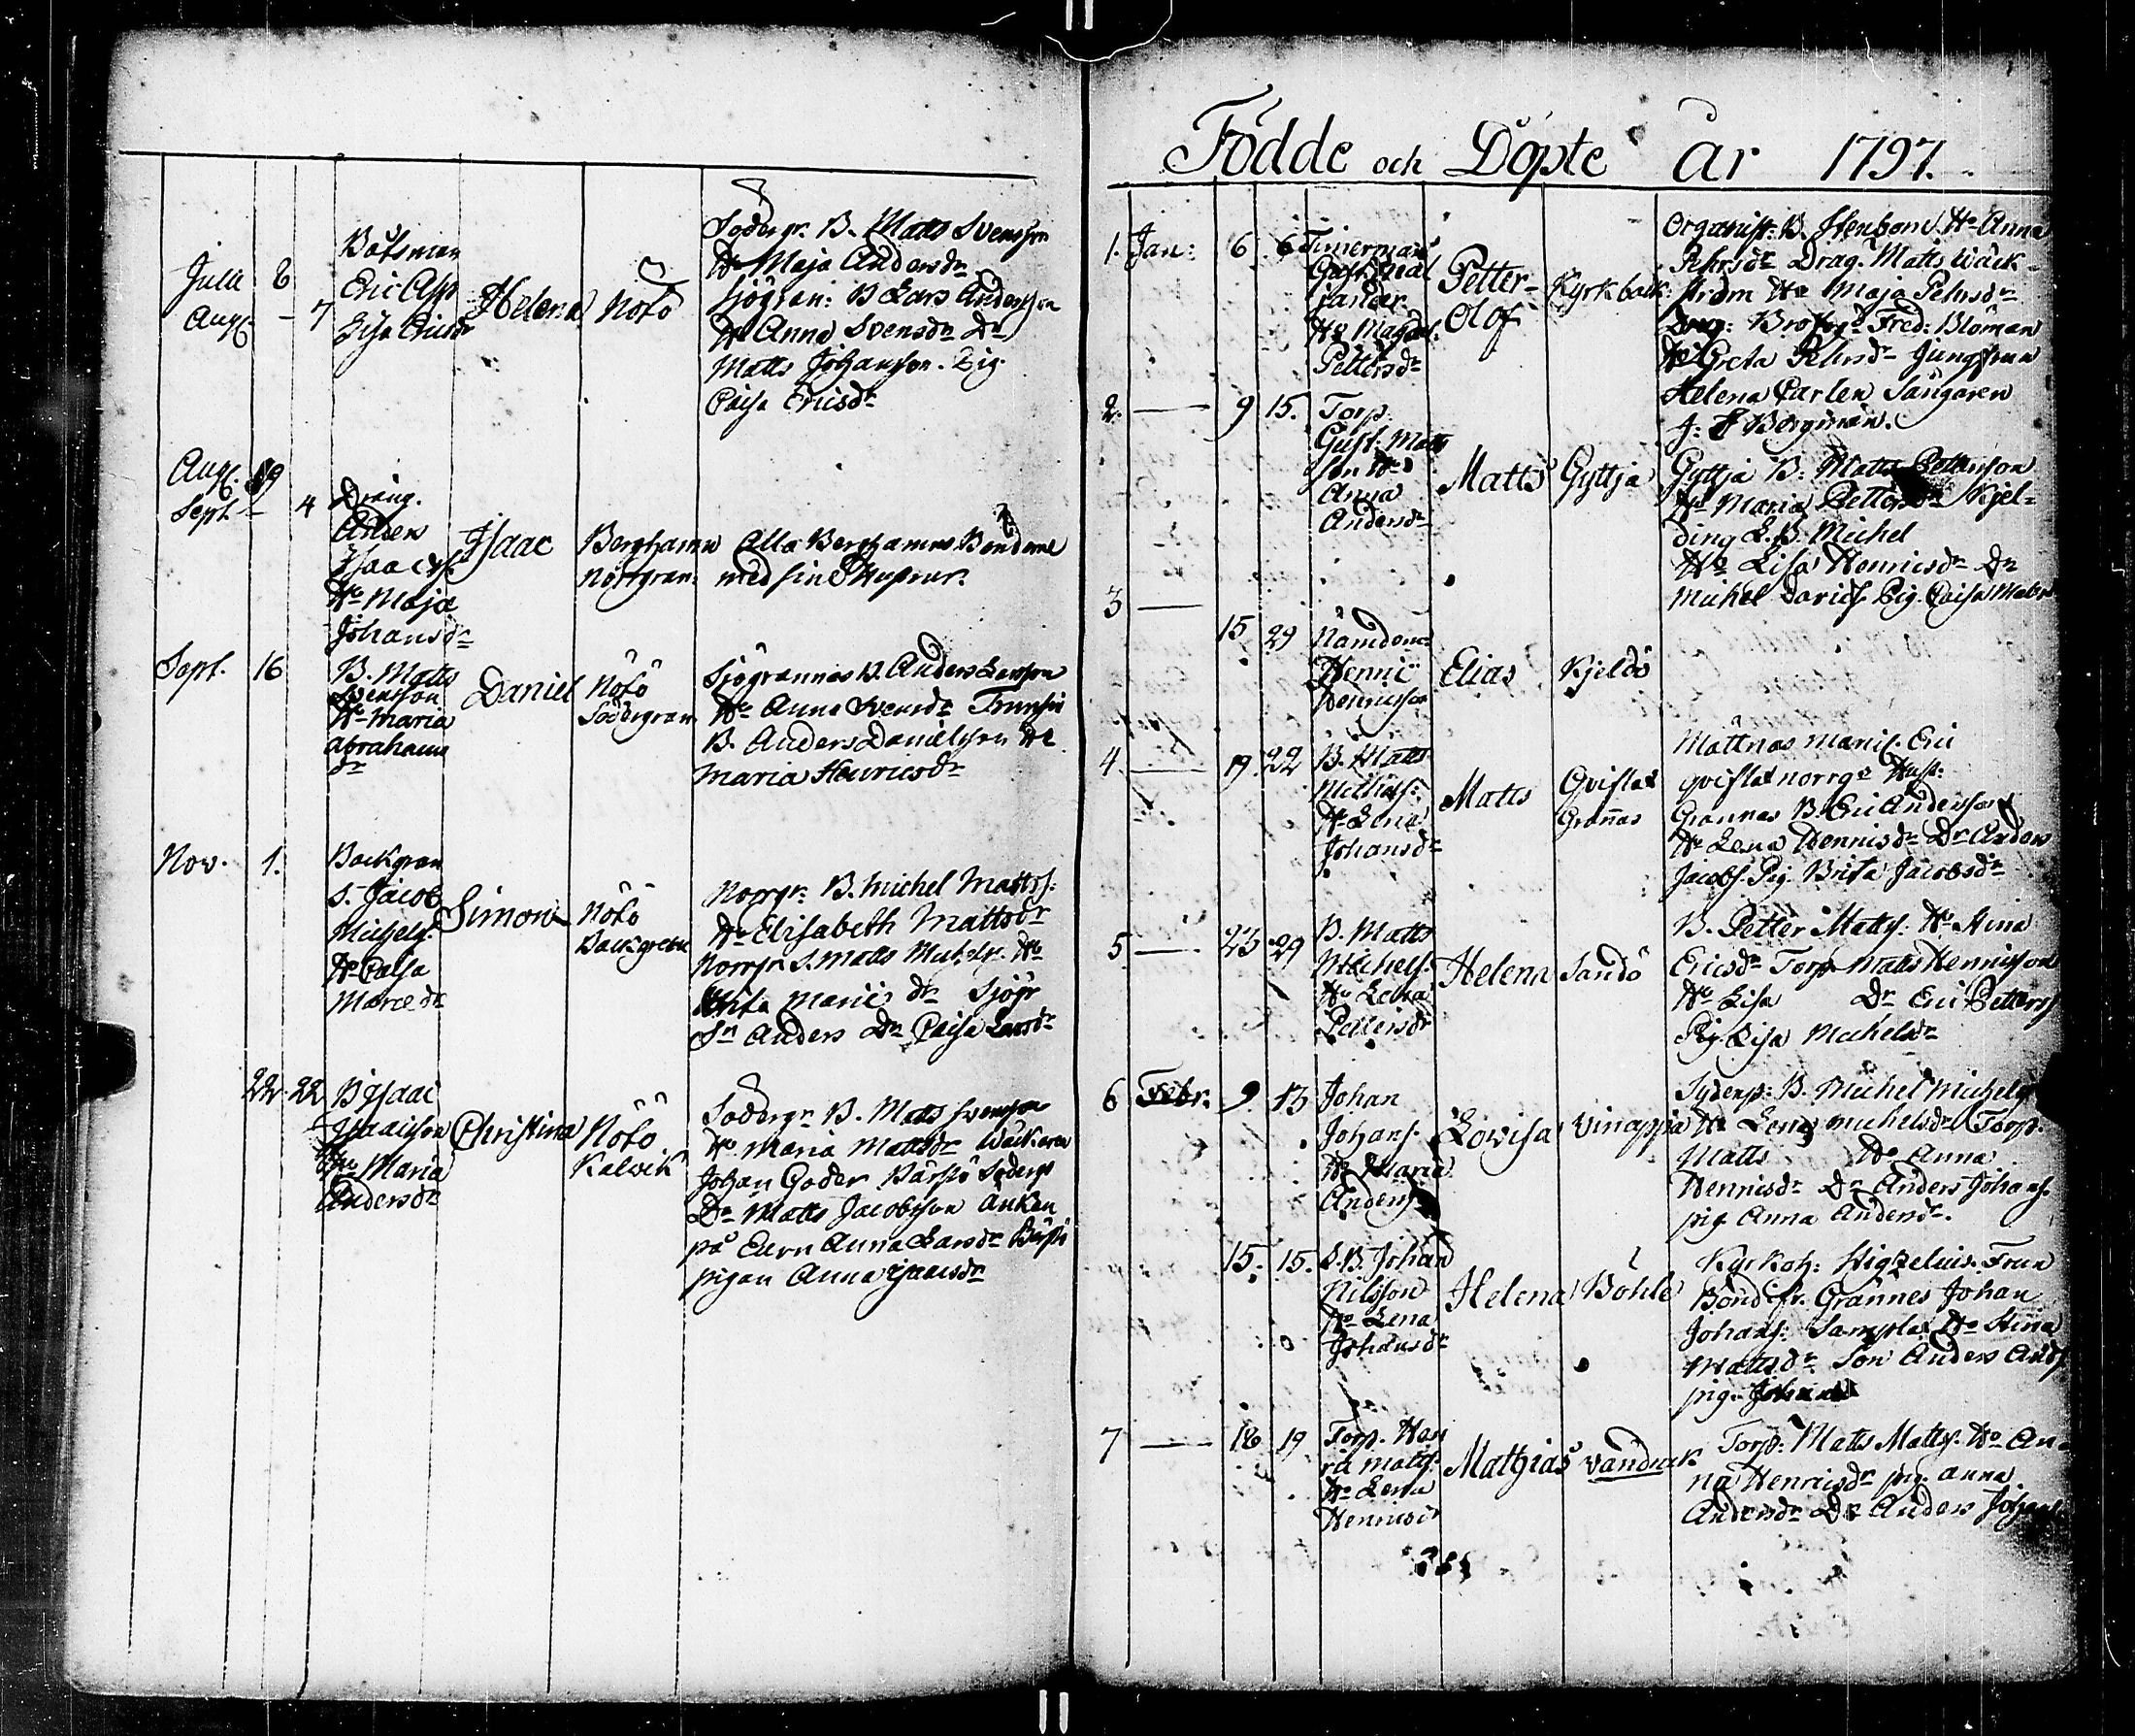 Julii 8
Aug. – 7
Båtsman
Eric Asp
Lisa Ericsdr
Helena
Nötö
Södergr. B. Matts Svensson
Ho Maja Andersdr
Sjögran: B Lars Andersson
Ho Anna Svensdr Dr
Matts Johansson. Pig.
Caisa Ericsdr
Aug. 29
Sept – 4
Dräng.
Anders
Isaacs.
Ho Maja
Johansdr
Isaac
Berghamn
Norrgran.
Alla Berghamns Bönderne
med sine Hustrur.
Sept. 16
B. Matts
Svensson
Ho Maria
Abrahams
dr
Daniel
Nötö
Södergran
Sjögrannas B. Anders Larsson
Ho Anna Svensdr
B. Anders Danielsson Ho
Maria Henricsdr
Nov. 1.
Backgran
S. Jacob
Michels.
Ho Caisa
Simon
Nötö
Backgran
Norrgr. B. Michel Mattss.
Ho Elisabeth Mattsdr
Norrgr. S. Matts Michels. Ho
Brita dr Sjögr
Sn Anders Dr Caisa Larsdr
22. 22
B Isaac
Isaacsson
Ho Maria
Andersdr
Christina
Nötö
Kalvik
Södergr B. Matts Svensson
Ho Maria Mattsdr
Johan Södergr
Dr Matts Jacobsson Änkan
på Anna Larsdr
pigan Anna Isaacsdr
Födde och Döpte år 1797.
1. Jan: 6. 6
Timerman
Gust.
Ho Magdal.
Pettersdr
Petter-
Olof
Kyrkback.
Organist: B. Stenbom. Ho Anna
Pehrsdr Drag. Matts Wäck-
ström Ho Maja Pehrsdr
Fred: Bloman
Ho Greta Pehrsdr Jungfrun
Helena Carlen Sångaren
J: F Bergman.
2. — 9 15.
Torp.
Gust. Matts
son Ho
Anna
Andersdr
Matts
Gyttja
Gyttja B. Matts Pettersson
Ho Maria Pettersdr Kjel-
ding L. B. Michel
Ho Lisa Henricsdr Dr
Michel Davids. Pig. Caisa
3 —
15 29
Nämdem.
Henric
Henricsson
Elias
Kjeldö
4 — 19. 22
B. Matts
Michels:
Ho Lena
Johansdr
Matts
Qvifla
Grannas
Mattnäs Eric
Qvifla norrgr Hust:
Grannas B. Eric Andersson
Ho Lena Henricsdr Dr Anders
Jacobs. Pig. Brita Jacobsdr
5 — 23 29
B. Matts
Michels.
Ho Lena
Pettersdr
Helena
Sandö
B. Petter Matts. Ho Stina
Ericsdr Torp Matts Henricsson
Ho Lisa Dr Eric Petters
Pig. Lisa Michelsdr
6 Febr. 9. 13
Johan
Johans.
Ho Maria
Anders
Lowisa
Vinappa
B. Michel Michels
Ho Lena Michelsdr Torp.
Matts Ho Anna
Henricsdr Dr Anders Johans.
pig Anna Andersdr.
15. 15.
L. B. Johan
Nilsson
Ho Lena
Johansdr
Helena
Böhle
Kyrkoh: Frun
Grannes Johan
Johans: Ho Stina
Mattsdr Son Anders Ands
pig.
7 — 18 19
Torp. Hen
ric Matts.
Ho Lena
Henricsdr
Mathias
Torp: Matts Matts. Ho An-
na Henricsdr pig. Anna
Andersdr Dr Anders Johans.